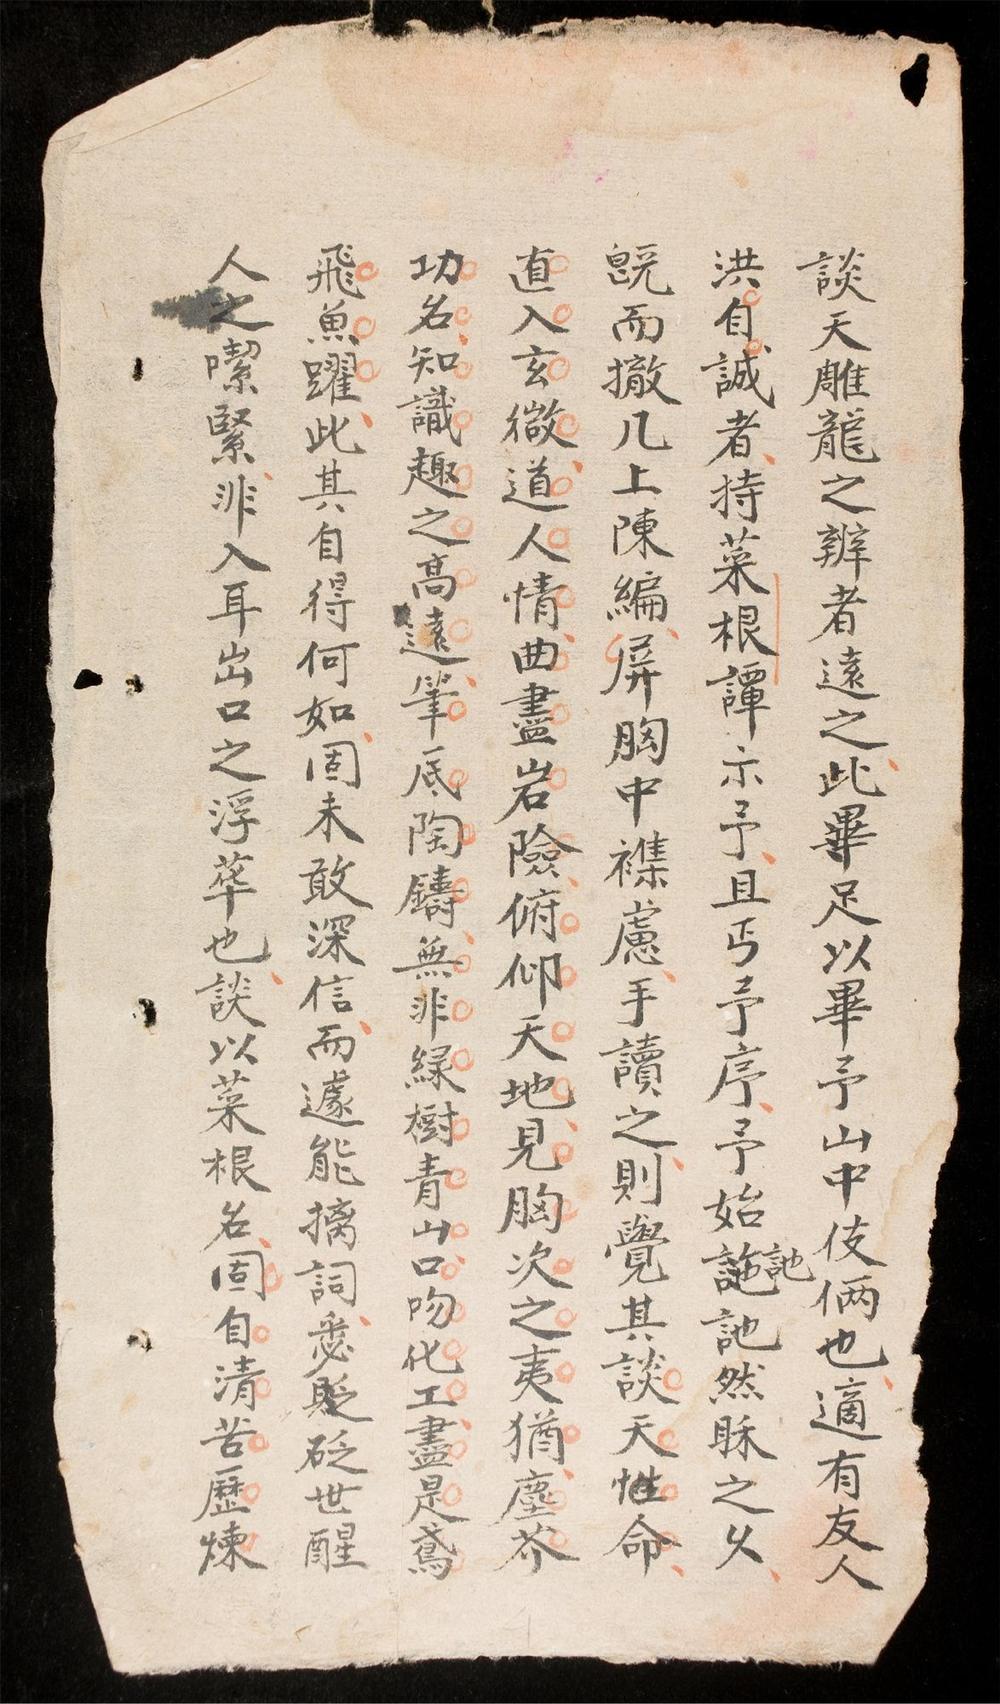 談天雕龍之辨者遠之此畢足以畢予山中伎倆也適有友人
洪自誠者持菜根譚示予且丐予序予始訑訑訑然眎之乆
既而撤几上陳編屏胸中襍慮手讀之則覺其談天性命
直入玄微道人情曲盡岩險俯仰天地見胸次之夷猶塵芥
功名知識趣之高遠筆底陶鑄無非綠樹青山口吻化工盡是鳶
飛魚躍此其自得何如固未敢深信而遽能摛詞悉貶砭世醒
人之喫緊非入耳出口之浮華也談以菜根名固自清苦歷煉